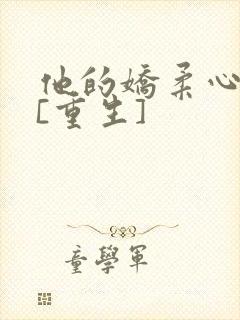 他的嬌柔心
[重生]
童學軍